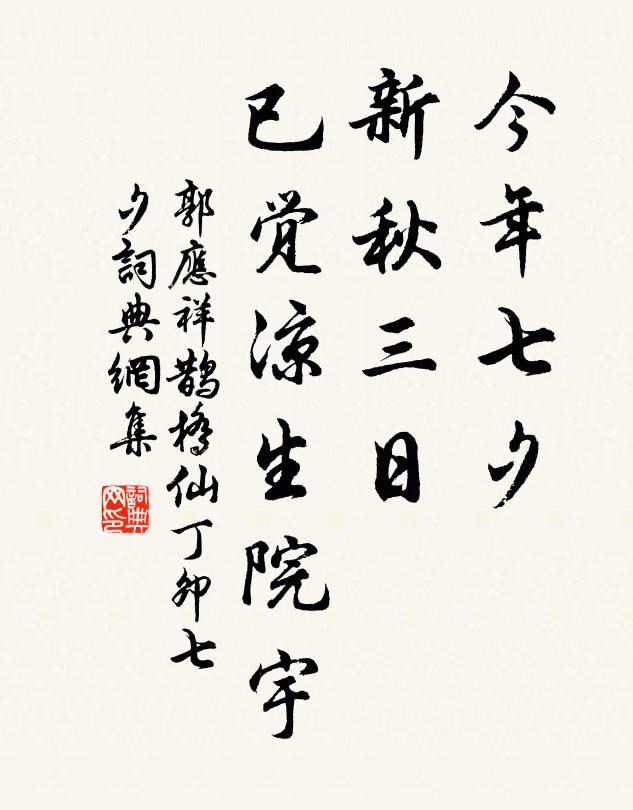 今年七夕
新秋三日
已觉凉生院宇
郭應祥鵲橋仙丁卯七
夕詞典網集
詞典
网印